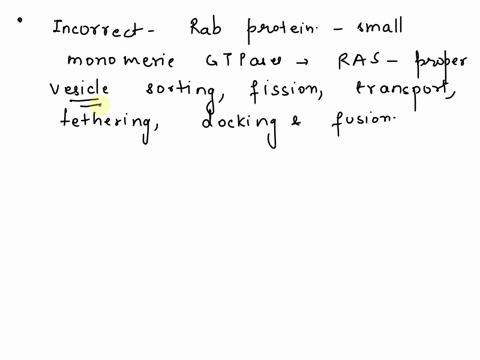 • Incorrect - Rab protein - small
monomeric GTPases → RAS - proper
vesicle sorting, fission, transport,
tethering, docking & fusion.